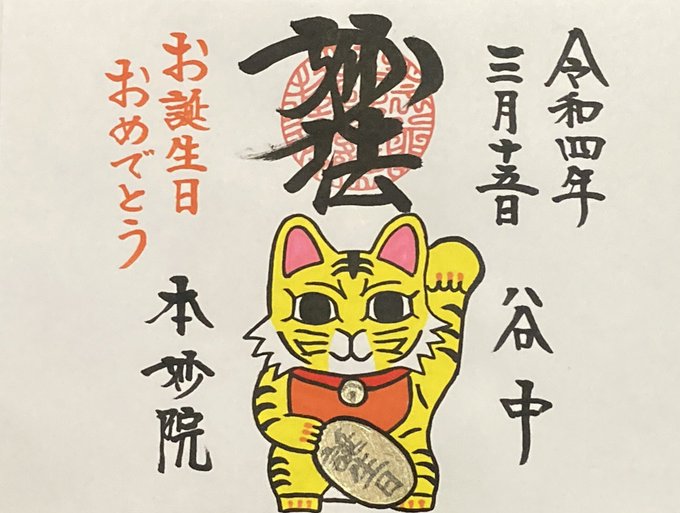 令和四年
三月十五日
谷中
妙法
お誕生日
おめでとう
本妙院
誕生日